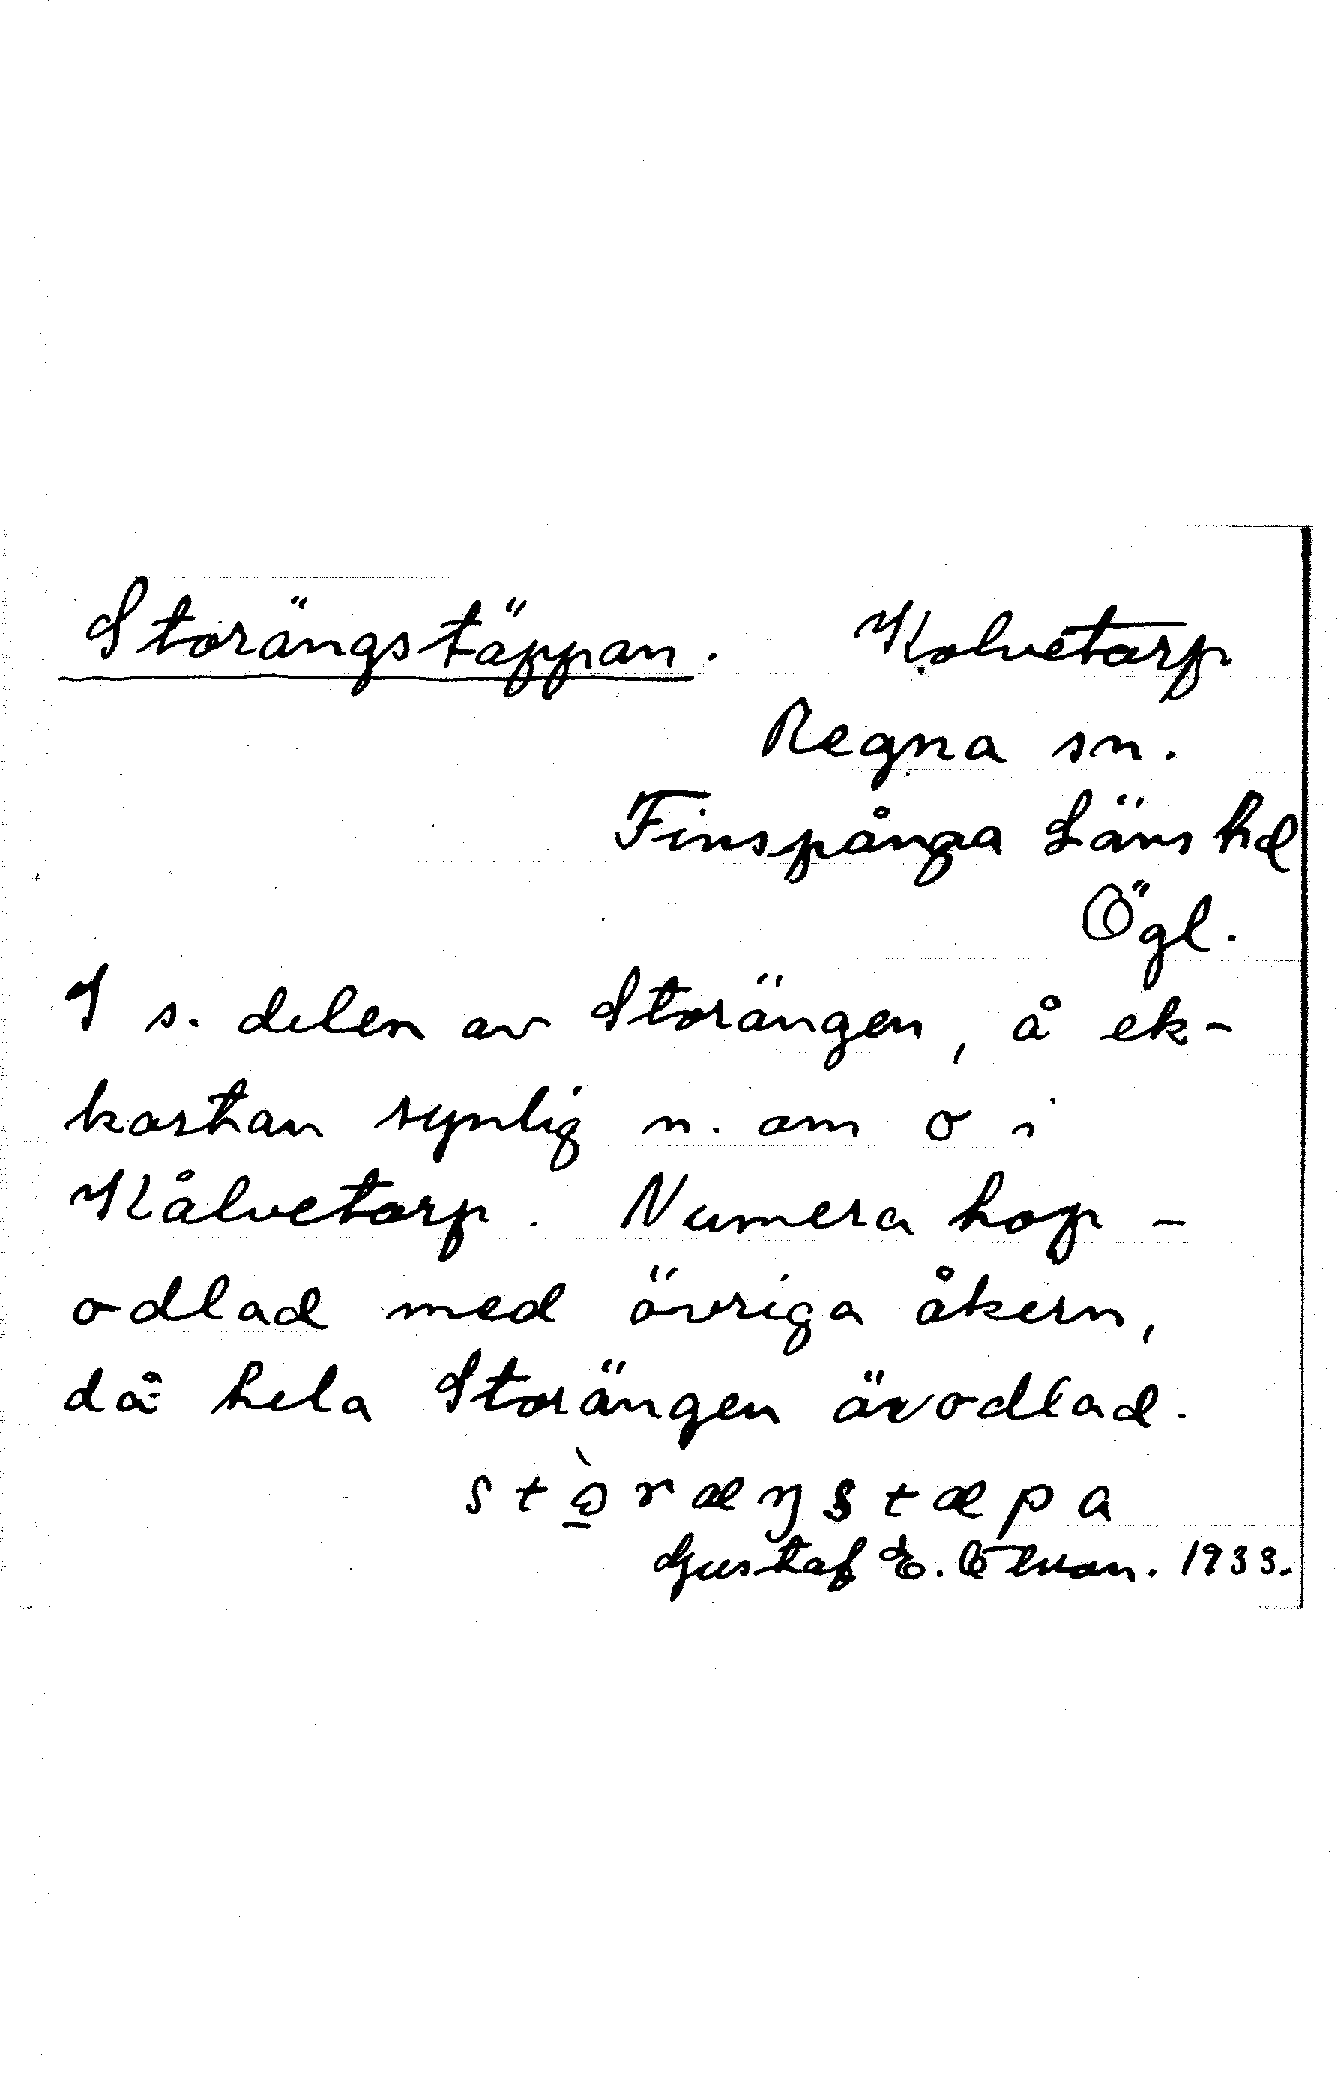 Storängstäppan. Kolvetorp
Regna sn.
Finspånga Läns hd
Ögl.
I s. delen av Storängen, å ek-
kartan synlig n. om o i
Kålvetorp. Numera hop-
odlad med övriga åkern,
då hela Storängen är odlad.
stò̱ræŋstæpa
Gustaf E. 1933.